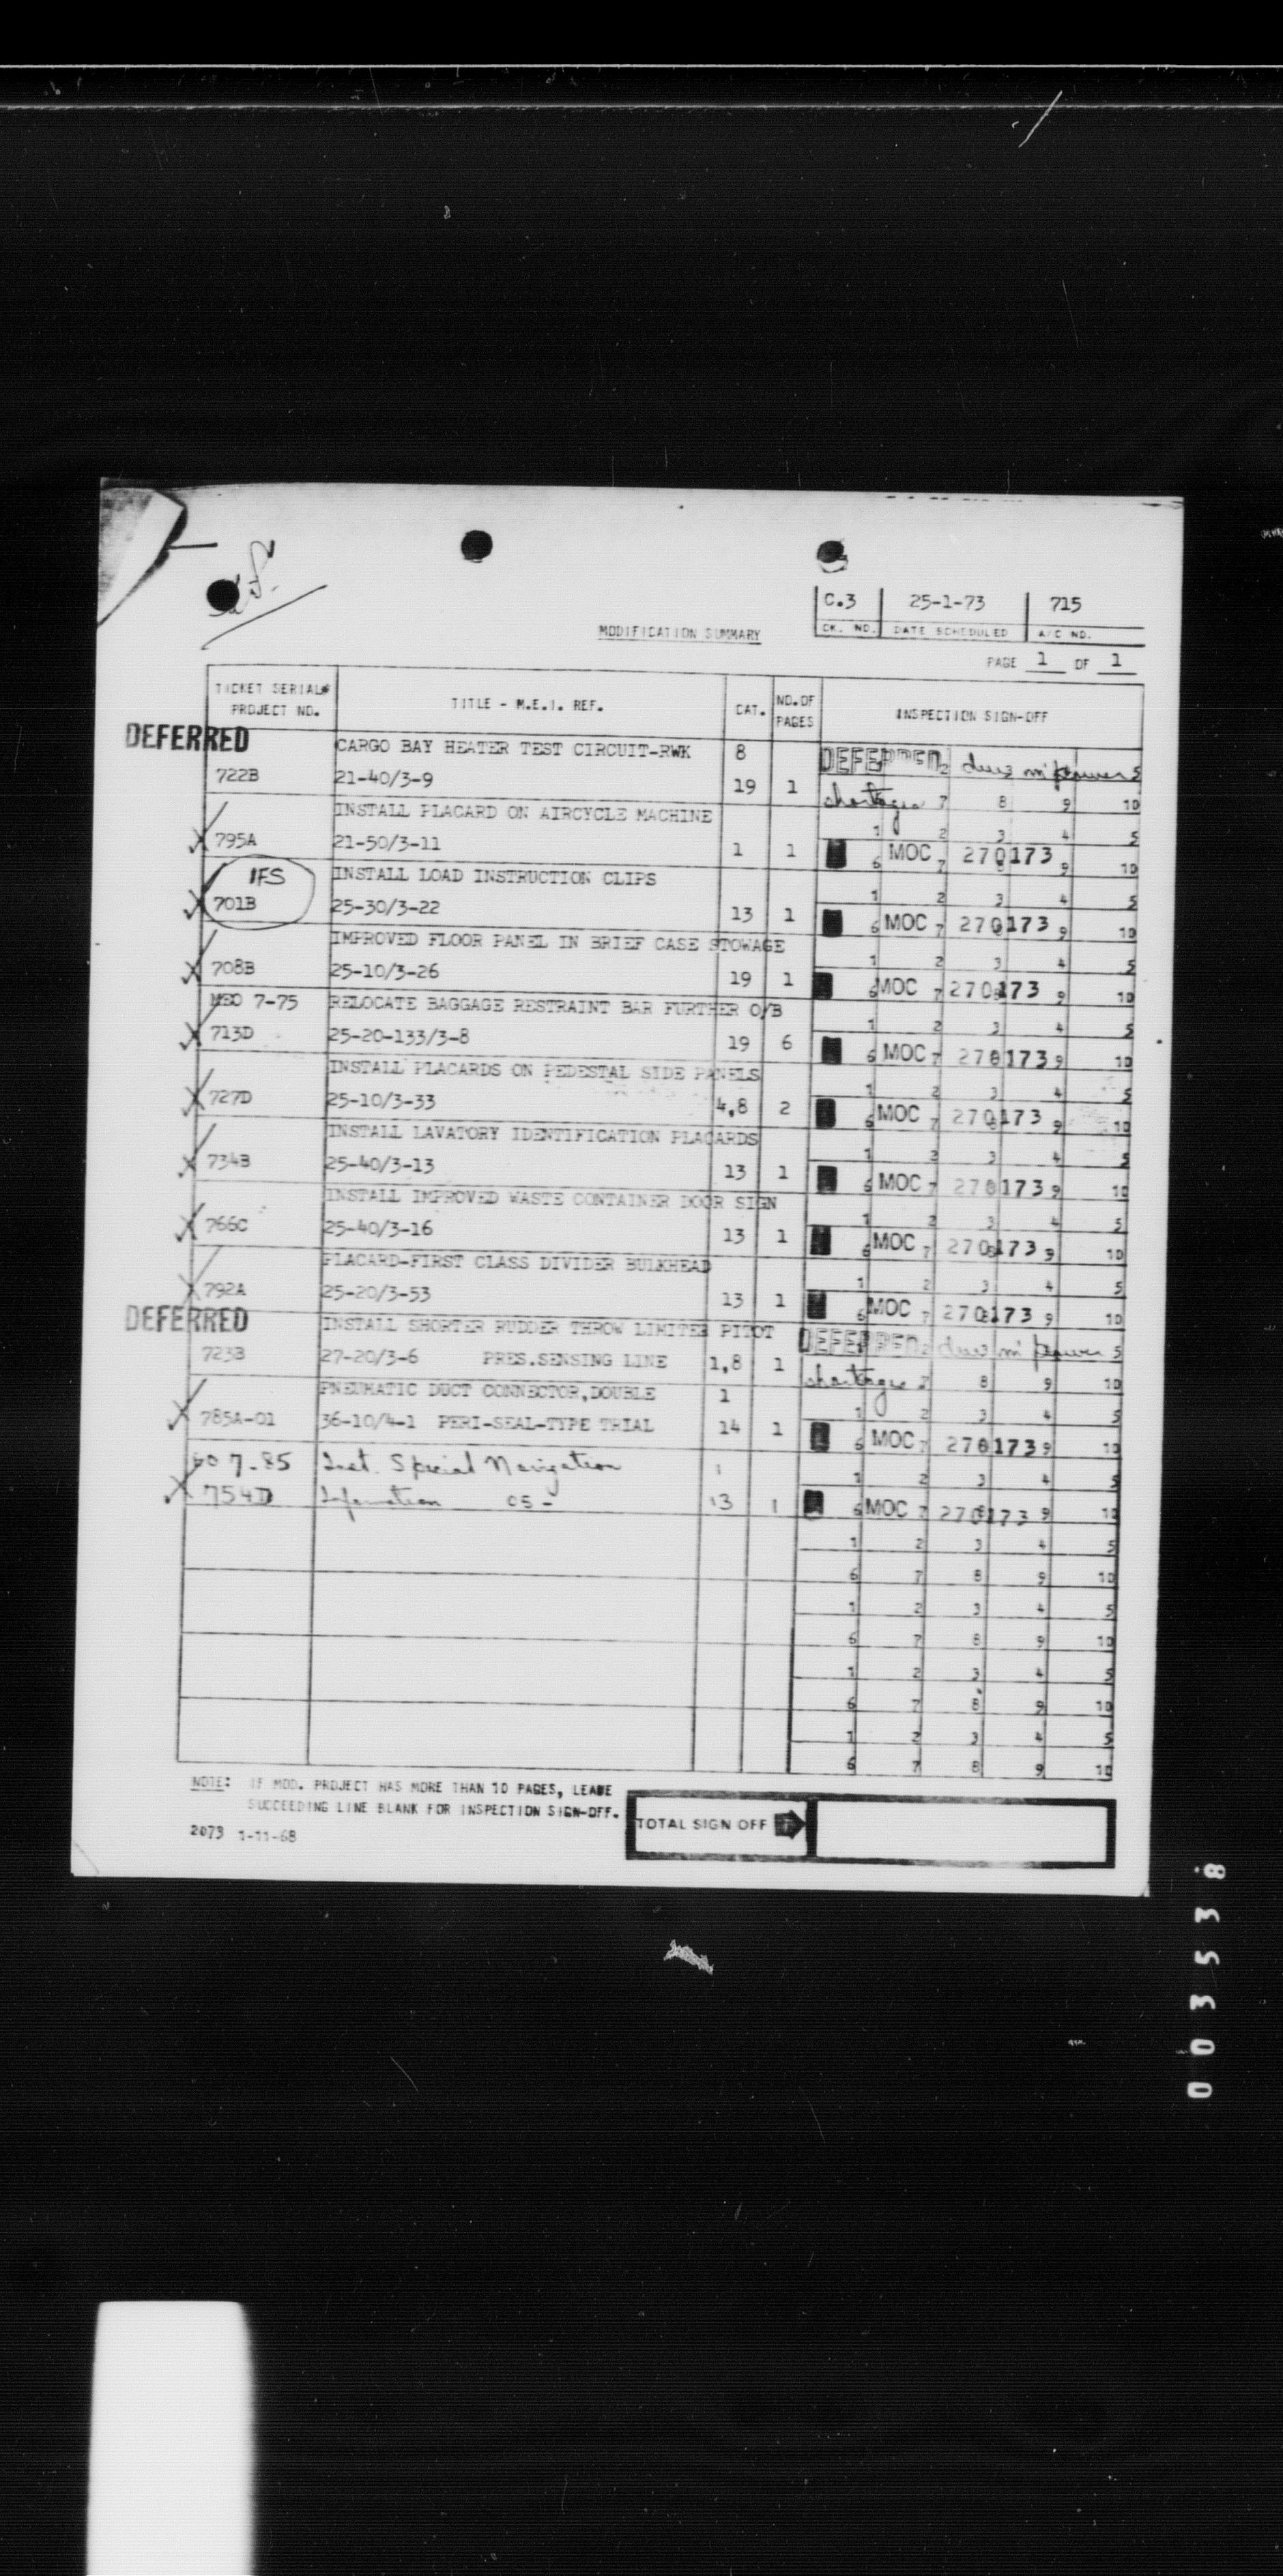 C.3 25-1-73 715
CK. NO. DATE SCHEDULED A/C NO.
MODIFICATION SUMMARY
PAGE 1 OF 1
TICKET SERIAL#
PROJECT NO. TITLE - M.E.I. REF. CAT. NO. OF PAGES INSPECTION SIGN-OFF
DEFERRED
CARGO BAY HEATER TEST CIRCUIT-RWK 8 DEFERRED 2 due m'power 5
722B 21-40/3-9 19 1 shortage 7 8 9 10
INSTALL PLACARD ON AIRCYCLE MACHINE 1 2 3 4 5
795A 21-50/3-11 1 1 6 MOC 7 270173 9 10
IFS INSTALL LOAD INSTRUCTION CLIPS 1 2 3 4 5
701B 25-30/3-22 13 1 6 MOC 7 270173 9 10
IMPROVED FLOOR PANEL IN BRIEF CASE STOWAGE 1 2 3 4 5
708B 25-10/3-26 19 1 6 MOC 7 270173 9 10
MEO 7-75 RELOCATE BAGGAGE RESTRAINT BAR FURTHER O/B 1 2 3 4 5
713D 25-20-133/3-8 19 6 6 MOC 7 270173 9 10
INSTALL PLACARDS ON PEDESTAL SIDE PANELS 1 2 3 4 5
727D 25-10/3-33 4,8 2 6 MOC 7 270173 9 10
INSTALL LAVATORY IDENTIFICATION PLACARDS 1 2 3 4 5
734B 25-40/3-13 13 1 6 MOC 7 270173 9 10
INSTALL IMPROVED WASTE CONTAINER DOOR SIGN 1 2 3 4 5
766C 25-40/3-16 13 1 6 MOC 7 270173 9 10
PLACARD-FIRST CLASS DIVIDER BULKHEAD 1 2 3 4 5
792A 25-20/3-53 13 1 6 MOC 7 270173 9 10
DEFERRED
INSTALL SHORTER RUDDER THROW LIMITER PITOT DEFERRED 2 due m'power 5
723B 27-20/3-6 PRES.SENSING LINE 1,8 1 shortage 7 8 9 10
PNEUMATIC DUCT CONNECTOR,DOUBLE 1 1 2 3 4 5
785A-01 36-10/4-1 PERI-SEAL-TYPE TRIAL 14 1 6 MOC 7 270173 9 10
7-85 Inst. Special Navigation 1 1 2 3 4 5
754D Information 05- 13 1 6 MOC 7 270173 9 10
1 2 3 4 5
6 7 8 9 10
1 2 3 4 5
6 7 8 9 10
1 2 3 4 5
6 7 8 9 10
1 2 3 4 5
6 7 8 9 10
NOTE: IF MOD. PROJECT HAS MORE THAN 10 PAGES, LEAVE
SUCCEEDING LINE BLANK FOR INSPECTION SIGN-OFF.
2073 1-11-68
TOTAL SIGN OFF
003538